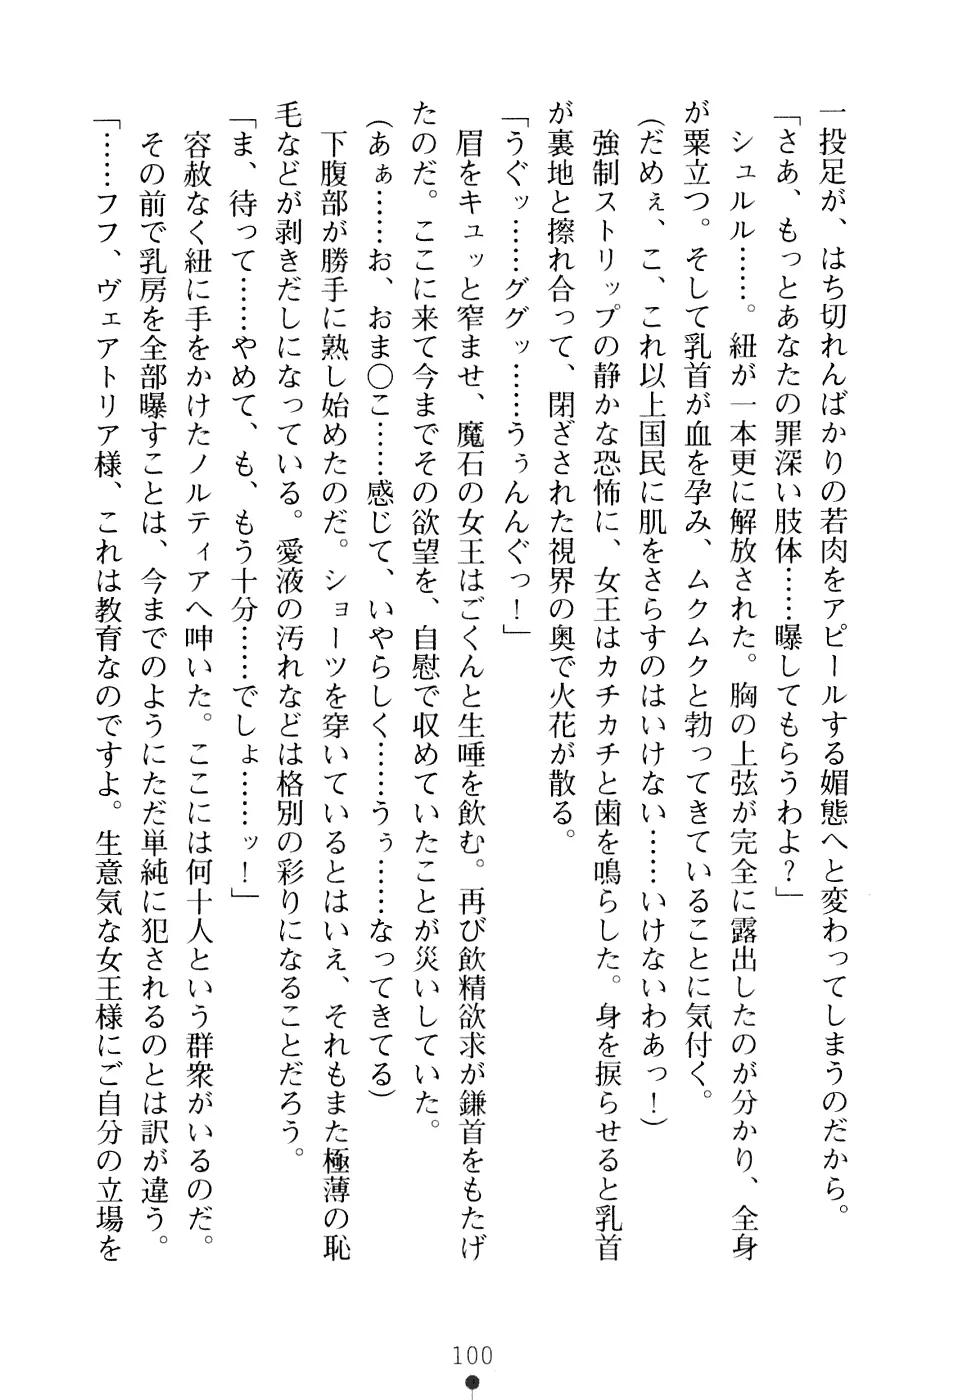 一投足が、はち切れんばかりの若肉をアピールする媚態へと変わってしまうのだから。
「さあ、もっとあなたの罪深い肢体……曝してもらうわよ?」
シュルル……。紐が一本更に解放された。胸の上弦が完全に露出したのが分かり、全身
が粟立つ。そして乳首が血を孕み、ムクムクと勃ってきていることに気付く。
(だめぇ、こ、これ以上国民に肌をさらすのはいけない……いけないわあっ!)
強制ストリップの静かな恐怖に、女王はカチカチと歯を鳴らした。身を捩らせると乳首
が裏地と擦れ合って、閉ざされた視界の奥で火花が散る。
「うぐッ……ググッ……うぅんんぐっ!」
眉をキュッと窄ませ、魔石の女王はごくんと生唾を飲む。再び飲精欲求が鎌首をもたげ
たのだ。ここに来て今までその欲望を、自慰で収めていたことが災いしていた。
(あぁ……お、おま〇こ……感じて、いやらしく……うぅ……なってきてる)
下腹部が勝手に熟し始めたのだ。ショーツを穿いているとはいえ、それもまた極薄の恥
毛などが剥きだしになっている。愛液の汚れなどは格別の彩りになることだろう。
「ま、待って……やめて、も、もう十分……でしょ……ッ!」
容赦なく紐に手をかけたノルティアへ呻いた。ここには何十人という群衆がいるのだ。
その前で乳房を全部曝すことは、今までのようにただ単純に犯されるのとは訳が違う。
「……フフ、ヴェアトリア様、これは教育なのですよ。生意気な女王様にご自分の立場を
100